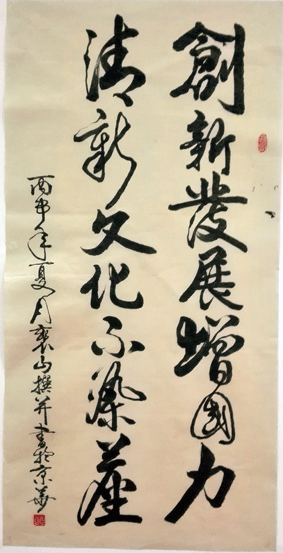 創新發展增國力
清新文化不染塵
丙申年夏月袁山撰并書於京華